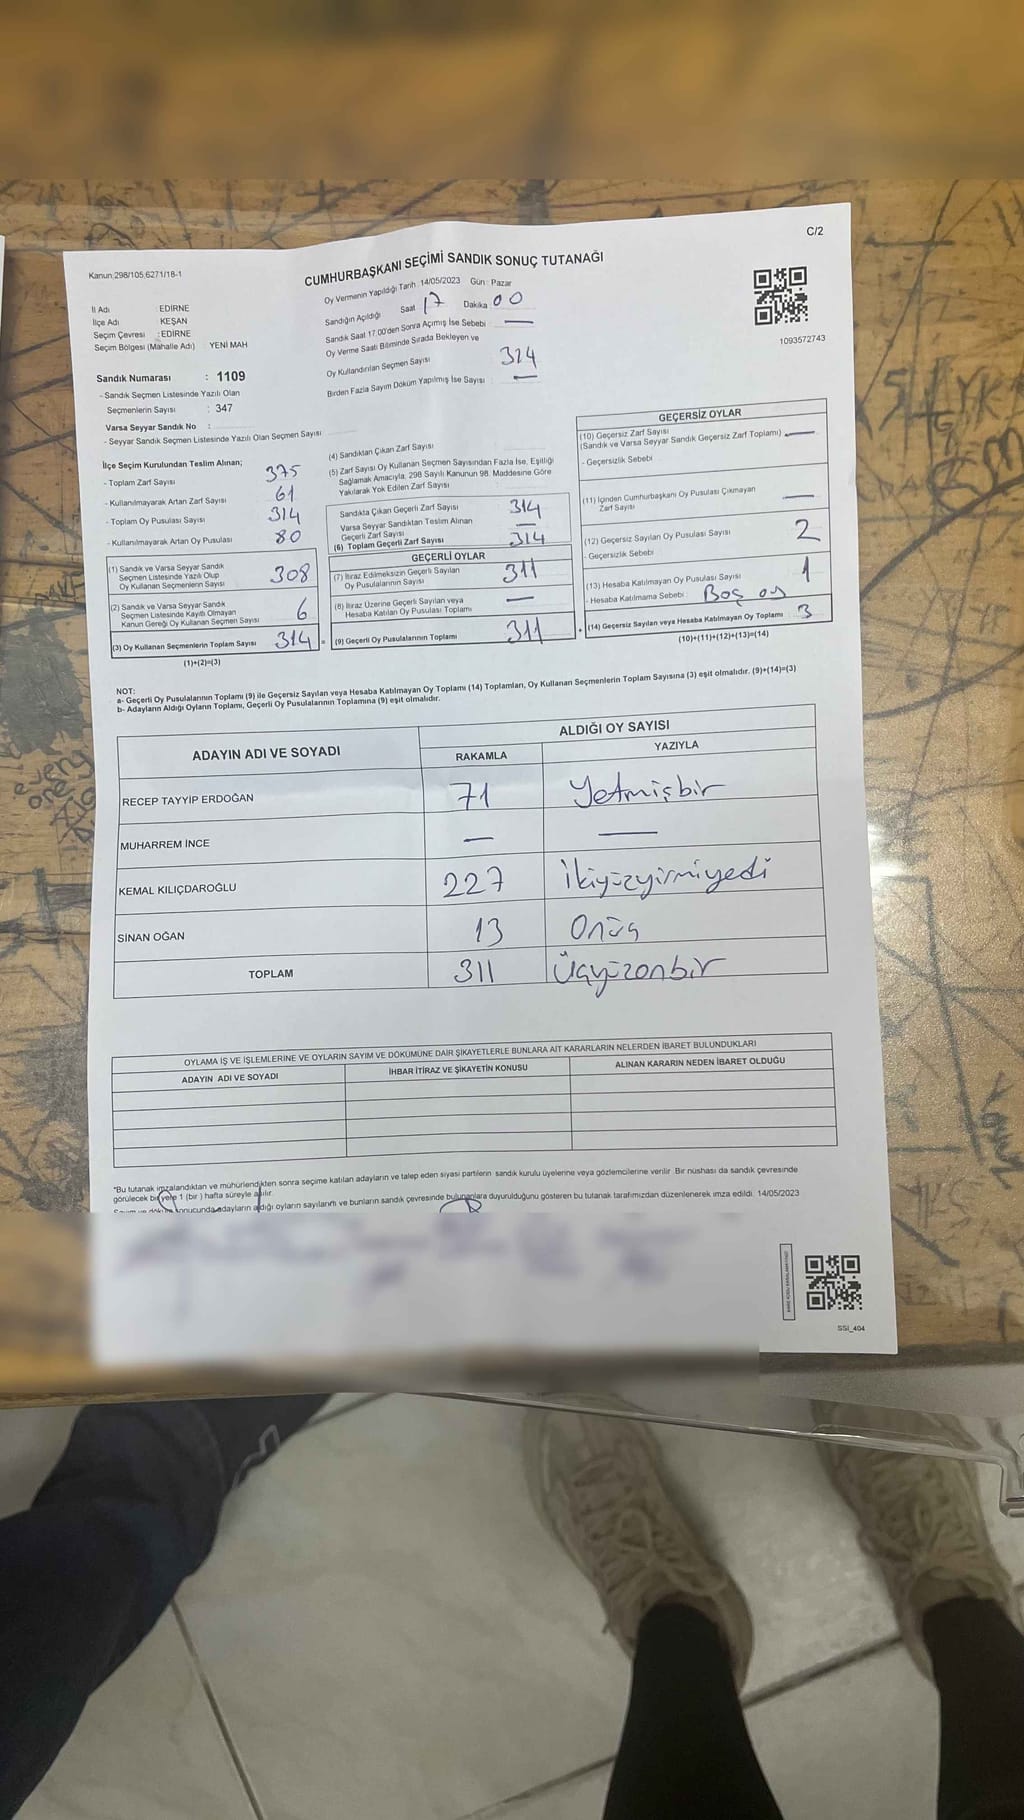 C/2
Kanun:298/105,6271/18-1
CUMHURBAŞKANI SEÇİMİ SANDIK SONUÇ TUTANAĞI
Oy Vermenin Yapıldığı Tarih :14/05/2023 Gün : Pazar
İl Adı : EDİRNE
İlçe Adı : KEŞAN
Seçim Çevresi : EDİRNE
Seçim Bölgesi (Mahalle Adı) YENİ MAH
Sandığın Açıldığı Saat 17 Dakika 00
Sandık Saat 17.00'den Sonra Açılmış İse Sebebi : —
Oy Verme Saati Bitiminde Sırada Bekleyen ve
Oy Kullandırılan Seçmen Sayısı 314
Birden Fazla Sayım Döküm Yapılmış İse Sayısı : —
1093572743
Sandık Numarası : 1109
- Sandık Seçmen Listesinde Yazılı Olan
Seçmenlerin Sayısı : 347
Varsa Seyyar Sandık No :
- Seyyar Sandık Seçmen Listesinde Yazılı Olan Seçmen Sayısı
İlçe Seçim Kurulundan Teslim Alınan;
- Toplam Zarf Sayısı 375
- Kullanılmayarak Artan Zarf Sayısı 61
- Toplam Oy Pusulası Sayısı 314
- Kullanılmayarak Artan Oy Pusulası 80
(1) Sandık ve Varsa Seyyar Sandık
Seçmen Listesinde Yazılı Olup
Oy Kullanan Seçmenlerin Sayısı 308
(2) Sandık ve Varsa Seyyar Sandık
Seçmen Listesinde Kayıtlı Olmayan
Kanun Gereği Oy Kullanan Seçmen Sayısı 6
(3) Oy Kullanan Seçmenlerin Toplam Sayısı 314 =
(1)+(2)=(3)
(4) Sandıktan Çıkan Zarf Sayısı
(5) Zarf Sayısı Oy Kullanan Seçmen Sayısından Fazla İse, Eşitliği
Sağlamak Amacıyla, 298 Sayılı Kanunun 98. Maddesine Göre
Yakılarak Yok Edilen Zarf Sayısı
Sandıkta Çıkan Geçerli Zarf Sayısı 314
Varsa Seyyar Sandıktan Teslim Alınan
Geçerli Zarf Sayısı —
(6) Toplam Geçerli Zarf Sayısı 314
GEÇERLİ OYLAR
(7) İtiraz Edilmeksizin Geçerli Sayılan
Oy Pusulalarının Sayısı 311
(8) İtiraz Üzerine Geçerli Sayılan veya
Hesaba Katılan Oy Pusulaları Toplamı —
(9) Geçerli Oy Pusulalarının Toplamı 311 +
GEÇERSİZ OYLAR
(10) Geçersiz Zarf Sayısı
(Sandık ve Varsa Seyyar Sandık Geçersiz Zarf Toplamı) —
- Geçersizlik Sebebi
(11) İçinden Cumhurbaşkanı Oy Pusulası Çıkmayan
Zarf Sayısı —
(12) Geçersiz Sayılan Oy Pusulası Sayısı 2
- Geçersizlik Sebebi
(13) Hesaba Katılmayan Oy Pusulası Sayısı 1
- Hesaba Katılmama Sebebi : Boş oy
(14) Geçersiz Sayılan veya Hesaba Katılmayan Oy Toplamı 3
(10)+(11)+(12)+(13)=(14)
NOT:
a- Geçerli Oy Pusulalarının Toplamı (9) ile Geçersiz Sayılan veya Hesaba Katılmayan Oy Toplamı (14) Toplamları, Oy Kullanan Seçmenlerin Toplam Sayısına (3) eşit olmalıdır. (9)+(14)=(3)
b- Adayların Aldığı Oyların Toplamı, Geçerli Oy Pusulalarının Toplamına (9) eşit olmalıdır.
ADAYIN ADI VE SOYADI ALDIĞI OY SAYISI
RAKAMLA YAZIYLA
RECEP TAYYİP ERDOĞAN 71 Yetmişbir
MUHARREM İNCE — —
KEMAL KILIÇDAROĞLU 227 İkiyüzyirmiyedi
SİNAN OĞAN 13 Onüç
TOPLAM 311 Üçyüzonbir
OYLAMA İŞ VE İŞLEMLERİNE VE OYLARIN SAYIM VE DÖKÜMÜNE DAİR ŞİKAYETLERLE BUNLARA AİT KARARLARIN NELERDEN İBARET BULUNDUKLARI
ADAYIN ADI VE SOYADI İHBAR İTİRAZ VE ŞİKAYETİN KONUSU ALINAN KARARIN NEDEN İBARET OLDUĞU
*Bu tutanak imzalandıktan ve mühürlendikten sonra seçime katılan adayların ve talep eden siyasi partilerin sandık kurulu üyelerine veya gözlemcilerine verilir. Bir nüshası da sandık çevresinde
görülecek bir yere 1 (bir ) hafta süreyle asılır.
Sayım ve döküm sonucunda adayların aldığı oyların sayılarını ve bunların sandık çevresinde bulunanlara duyurulduğunu gösteren bu tutanak tarafımızdan düzenlenerek imza edildi. 14/05/2023
SSI_404